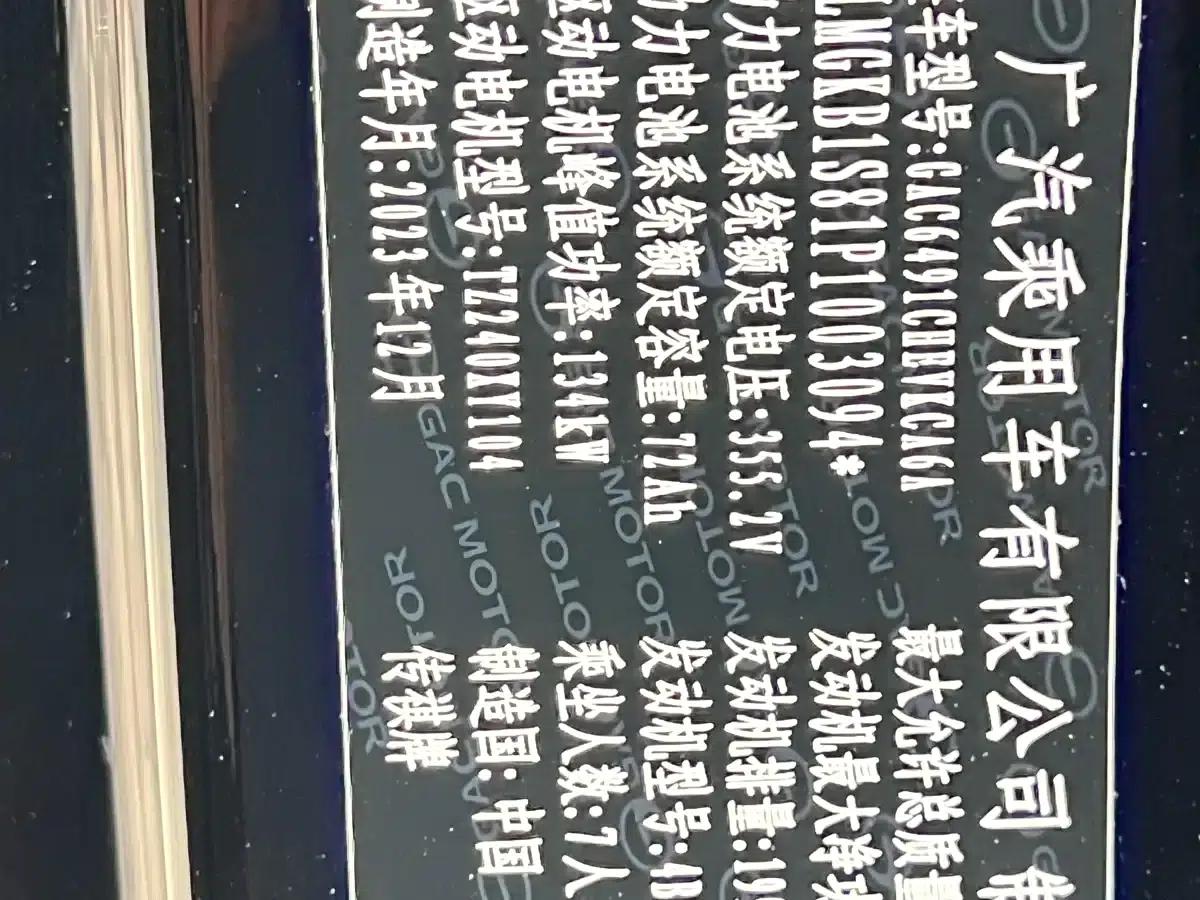 广汽乘用车有限公司
车型号:GAC6491CHEVCA6A 最大允许总质量
LMGKB1S81P1003094* 发动机最大净功
动力电池系统额定电压:355.2V 发动机排量:19
动力电池系统额定容量:72Ah 发动机型号:4B
驱动电机峰值功率:134kW 乘坐人数:7人
驱动电机型号:TZ240XY104 制造国:中国
制造年月:2023年12月 传祺牌
GAC MOTOR